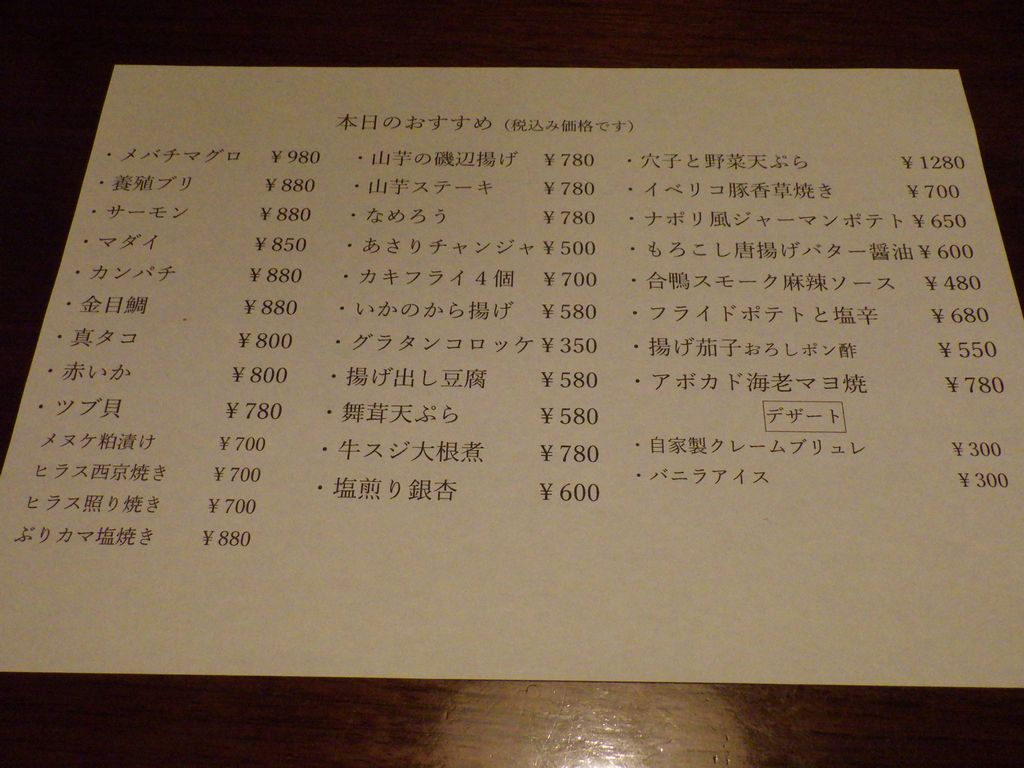 本日のおすすめ（税込み価格です）
・メバチマグロ ¥980
・養殖ブリ ¥880
・サーモン ¥880
・マダイ ¥850
・カンパチ ¥880
・金目鯛 ¥880
・真タコ ¥800
・赤いか ¥800
・ツブ貝 ¥780
メヌケ粕漬け ¥700
ヒラス西京焼き ¥700
ヒラス照り焼き ¥700
ぶりカマ塩焼き ¥880
・山芋の磯辺揚げ ¥780
・山芋ステーキ ¥780
・なめろう ¥780
・あさりチャンジャ ¥500
・カキフライ４個 ¥700
・いかのから揚げ ¥580
・グラタンコロッケ ¥350
・揚げ出し豆腐 ¥580
・舞茸天ぷら ¥580
・牛スジ大根煮 ¥780
・塩煎り銀杏 ¥600
・穴子と野菜天ぷら ¥1280
・イベリコ豚香草焼き ¥700
・ナポリ風ジャーマンポテト ¥650
・もろこし唐揚げバター醤油 ¥600
・合鴨スモーク麻辣ソース ¥480
・フライドポテトと塩辛 ¥680
・揚げ茄子おろしポン酢 ¥550
・アボカド海老マヨ焼 ¥780
デザート
・自家製クレームブリュレ ¥300
・バニラアイス ¥300